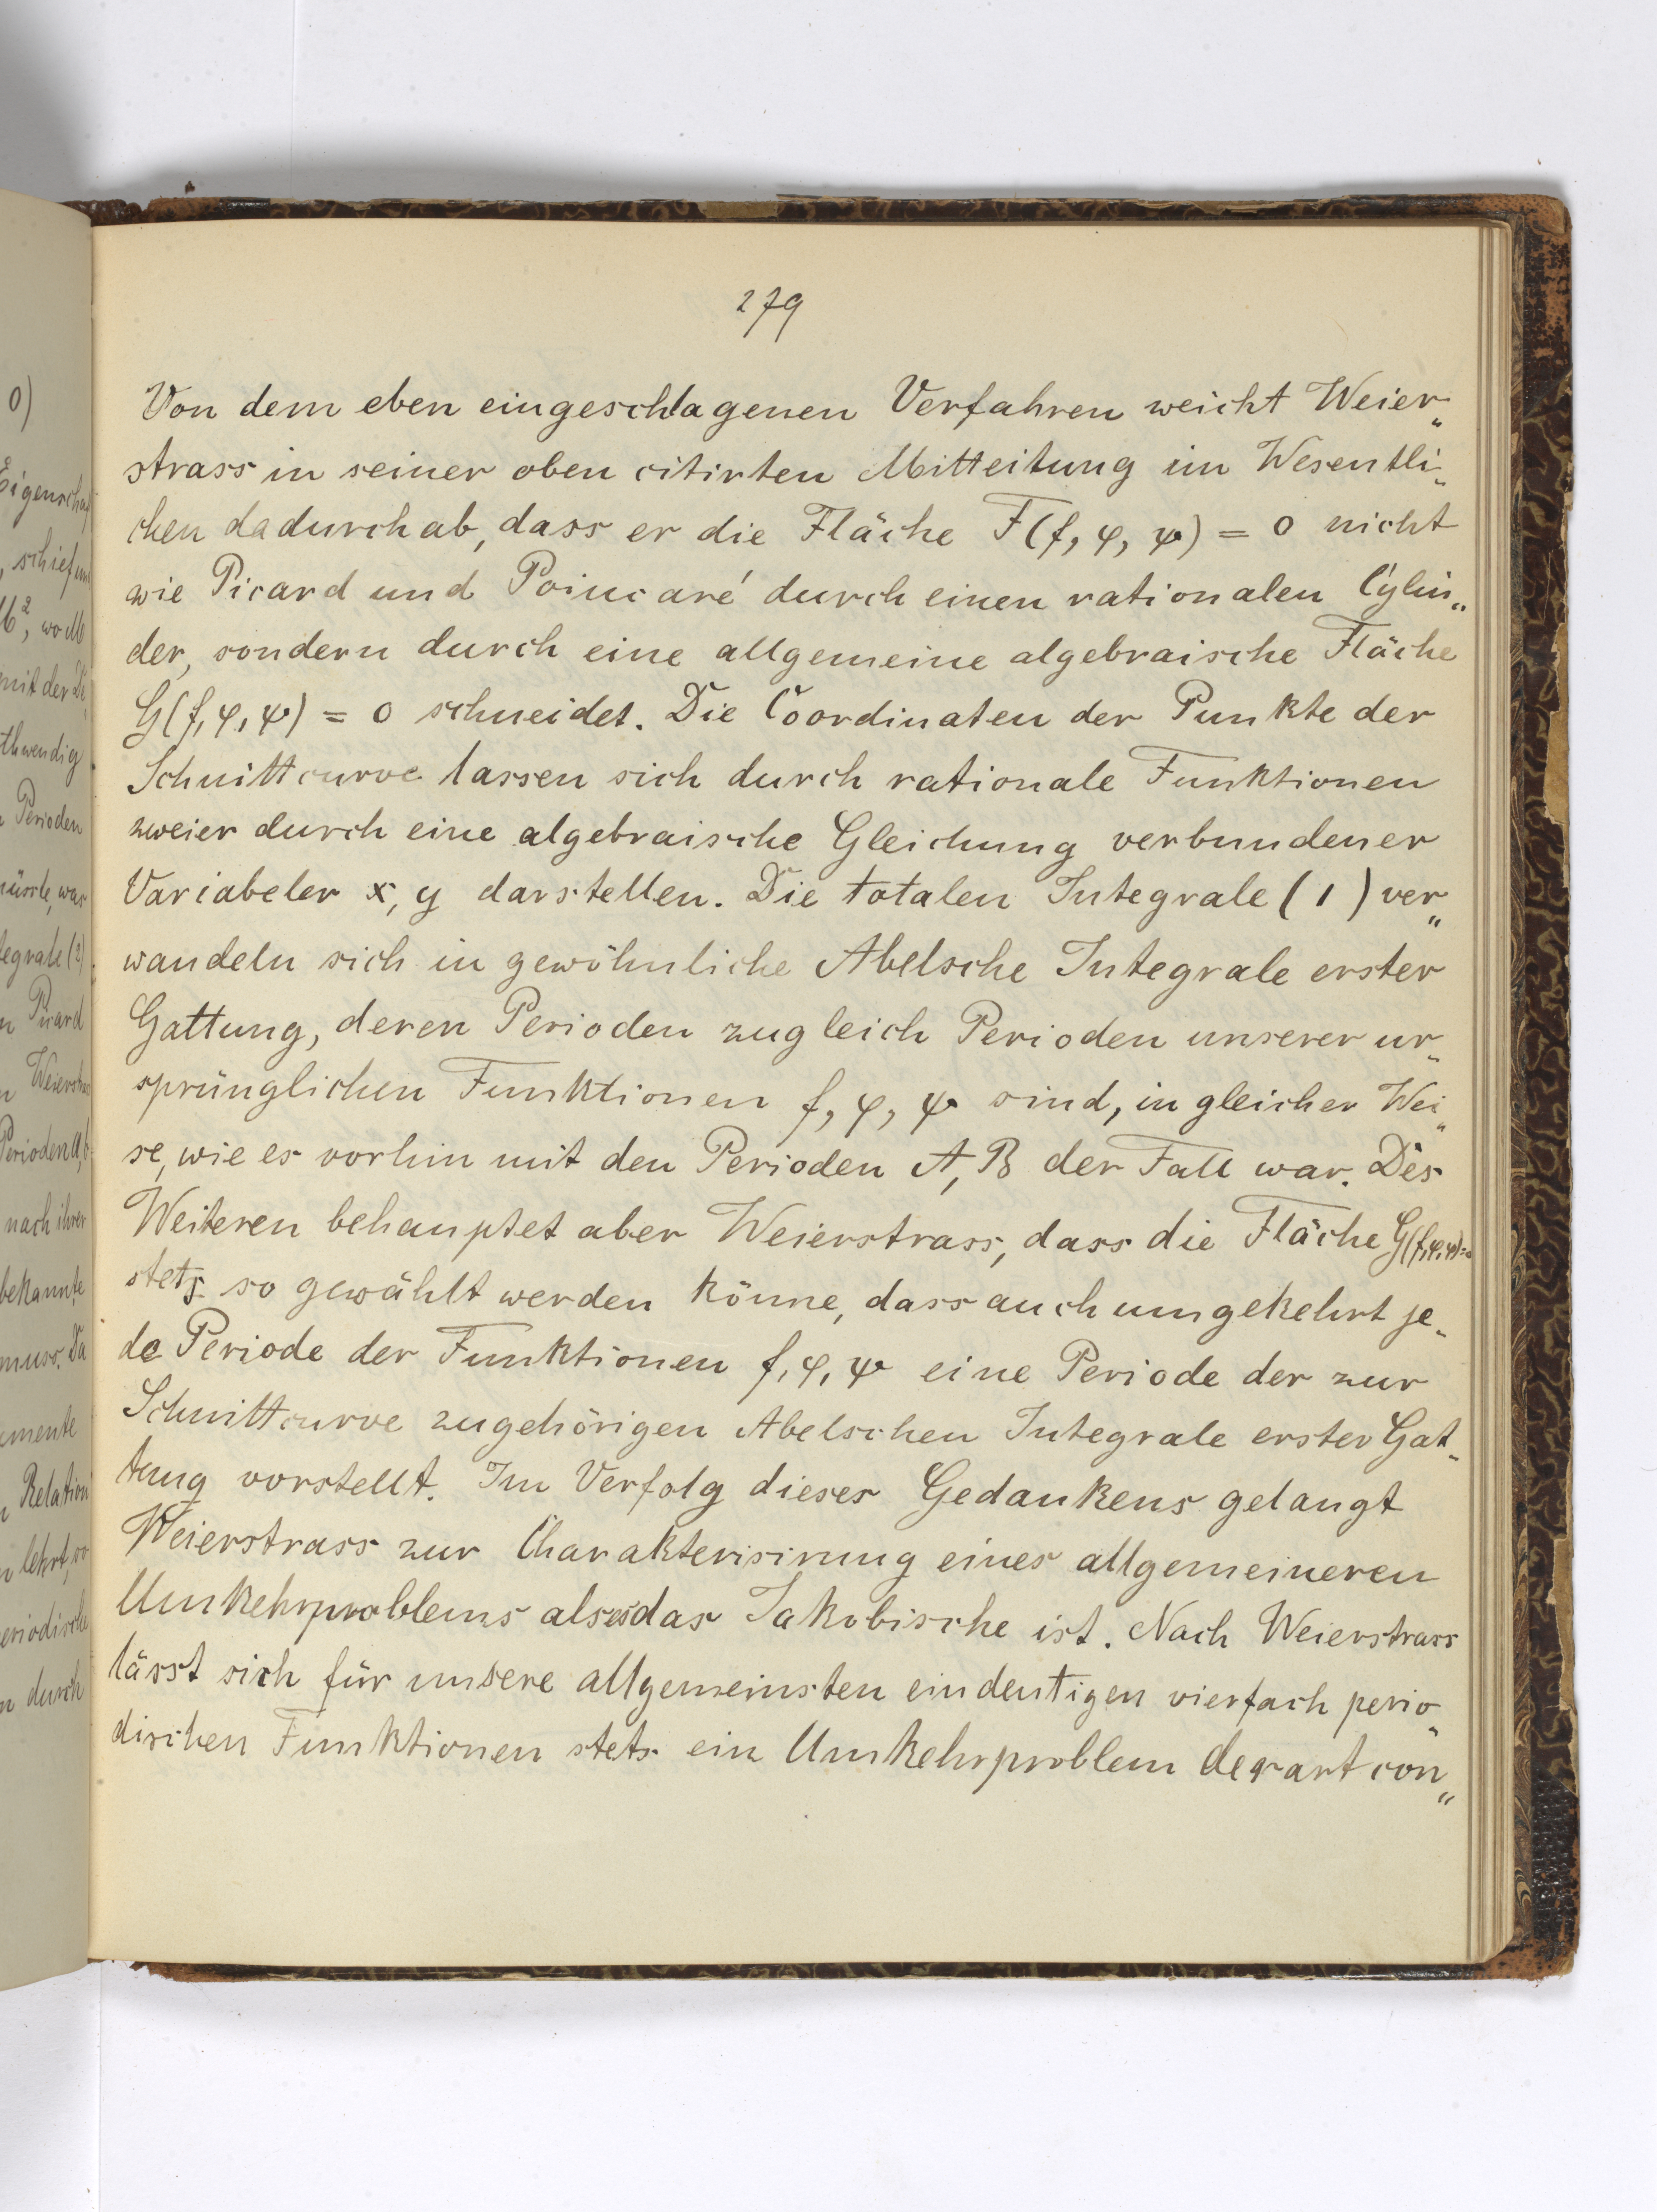 279
Von dem eben eingeschlagenen Verfahren weicht Weier„
strass in seiner oben citirten Mitteilung im Wesentli„
chen dadurch ab, dass er die Fläche F(f, φ, ψ) = 0 nicht
wie Picard und Poincaré durch einen rationalen Cylin„
der, sondern durch eine allgemeine algebraische Fläche
G(f, φ, ψ) = 0 schneidet. Die Coordinaten der Punkte der
Schnittcurve lassen sich durch rationale Funktionen
zweier durch eine algebraische Gleichung verbundener
Variabeler x, y darstellen. Die totalen Integrale (1) ver„
wandeln sich in gewöhnliche Abelsche Integrale erster
Gattung, deren Perioden zugleich Perioden unserer ur„
sprünglichen Funktionen f, φ, ψ sind, in gleicher Wei„
se, wie es vorhin mit den Perioden A, B der Fall war. Des
Weiteren behauptet aber Weierstrass, dass die Fläche G(f,φ,ψ)=0
stets so gewählt werden könne, dass auch umgekehrt je„
de Periode der Funktionen f, φ, ψ eine Periode der zur
Schnittcurve zugehörigen Abelschen Integrale erster Gat„
tung vorstellt. Im Verfolg dieses Gedankens gelangt
Weierstrass zur Charakterisirung eines allgemeineren
Umkehrproblems als es das Jakobische ist. Nach Weierstrass
lässt sich für unsere allgemeinsten eindeutigen vierfach perio„
dischen Funktionen stets ein Umkehrproblem derart con„
0)
Eigenschaf
, schief und
M², wo M
mit der Di„
thwendig
Perioden
müsste, was
tegrale (2)
n Picard
n Weierstras
Perioden A, b
nach ihrer
bekannte
muss. Da
emente
n Relation
n lehrt, so
eriodische
n durch